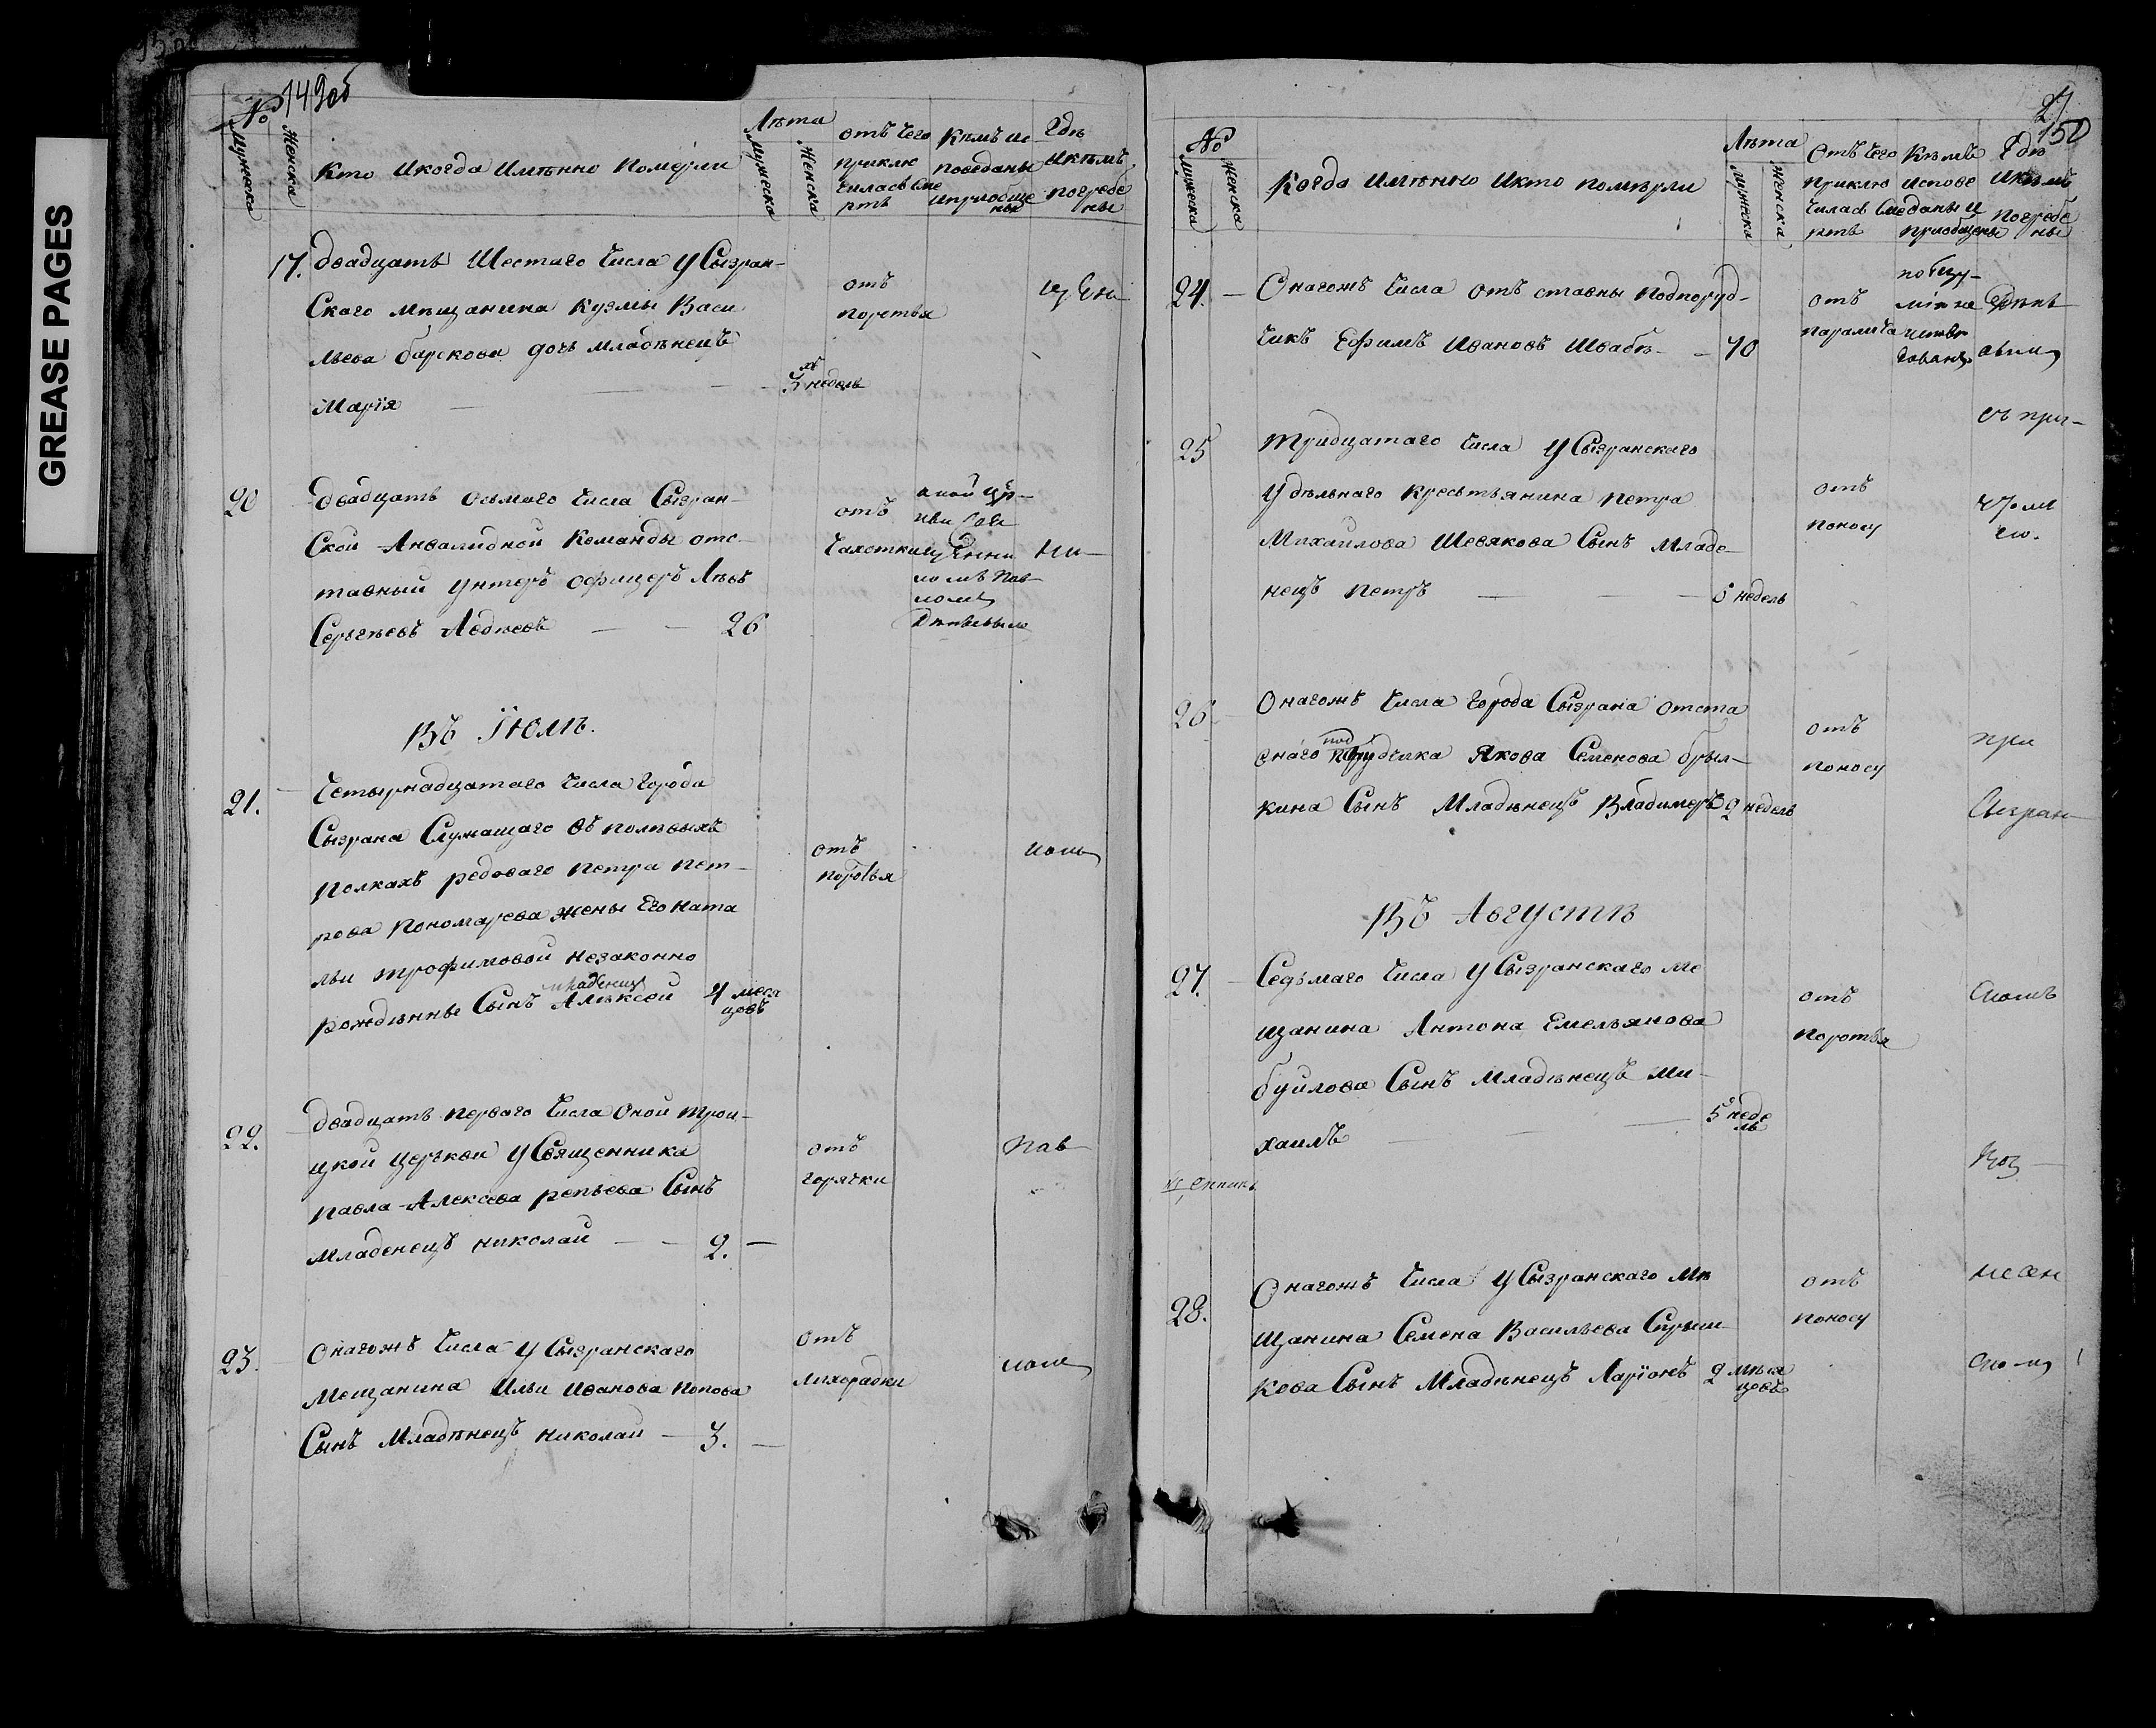 GREASE PAGES
149об
№
Мужеска
Женска
Кто Икогда Имѣнно Померли
Лѣта
Мужеска
Женска
отъ чего приклю чилась сме рть
Кѣмъ ис поведаны ипрiобще ны
Гдѣ Икѣмъ погребе ны
17. двадцать Шестаго Числа У Сызран-
Скаго мѣщанина Кузмы Васи
льева барскова дочь младѣнецъ
Марїя
3 недель
отъ
поротья
20 двадцать осьмаго Числа Сызран-
Ской Анвалидной Команды отс-
тавный Унтеръ офицеръ Лѣвъ
Сергѣевъ Авдѣевъ — — 26
отъ
Чахотки
оной Цер-
кви
Павломъ
Въ Iюлѣ.
21. Четырнадцатаго Числа Города
Сызрана Служащаго въ полѣвыхъ
Полкахъ редоваго Петра Пет-
рова Пономарева жены Его Ната
льи Трофимовой незаконно
рождѣнны Сынъ младенецъ Алѣксѣй 4 меся цовъ
отъ
поротья
22. двадцать перваго Числа Оной Трои-
цкой Церькви У Священника
Павла Алексѣева репьева Сынъ
Младенецъ николай — — 2. —
отъ
горячки
Пав-
23. Онагожъ Числа У Сызранскаго
Мещанина Ильи Иванова Попова
Сынъ Младѣнецъ николай — 3. —
отъ
лихорадки
150
№
Мужеска
Женска
Когда Имѣнно Икто помѣрли
Лѣта
Мужеска
Женска
Отъ чего приклю чилась сме рть
Кѣмъ испове даны и прiобщены
Гдѣ Икѣмъ погребе ны
24. — Онагожъ Числа Отъ ставны подпоруд-
чикъ Ефимъ Ивановъ Швабъ — 70
отъ
паралича
25 Тридцатаго Числа У Сызранскаго
Удѣльнаго Кресьтьянина Петра
Михайлова Шевякова Сынъ младе-
нецъ Петръ — — — 6 недель
отъ
поносу
съ при-
26 Онагожъ Числа города Сызрана отста
внаго подпорудчика Якова Семенова брыл-
кина Сынъ Младѣнецъ Владимеръ 2 недель
отъ
поносу
при
Сызран-
Въ Августѣ
27. — Седьмаго Числа У Сызранскаго ме
щанина Антона Емельянова
буйлова Сынъ Младѣнецъ Ми-
хаилъ — — — 5 неде ль
отъ
поротья
Воз-
28. Онагожъ Числа У Сызранскаго Мѣ
щанина Семена Васильева Стрыш-
кова Сынъ Младѣнецъ Ларїонъ 2 мѣся цовъ
отъ
поносу